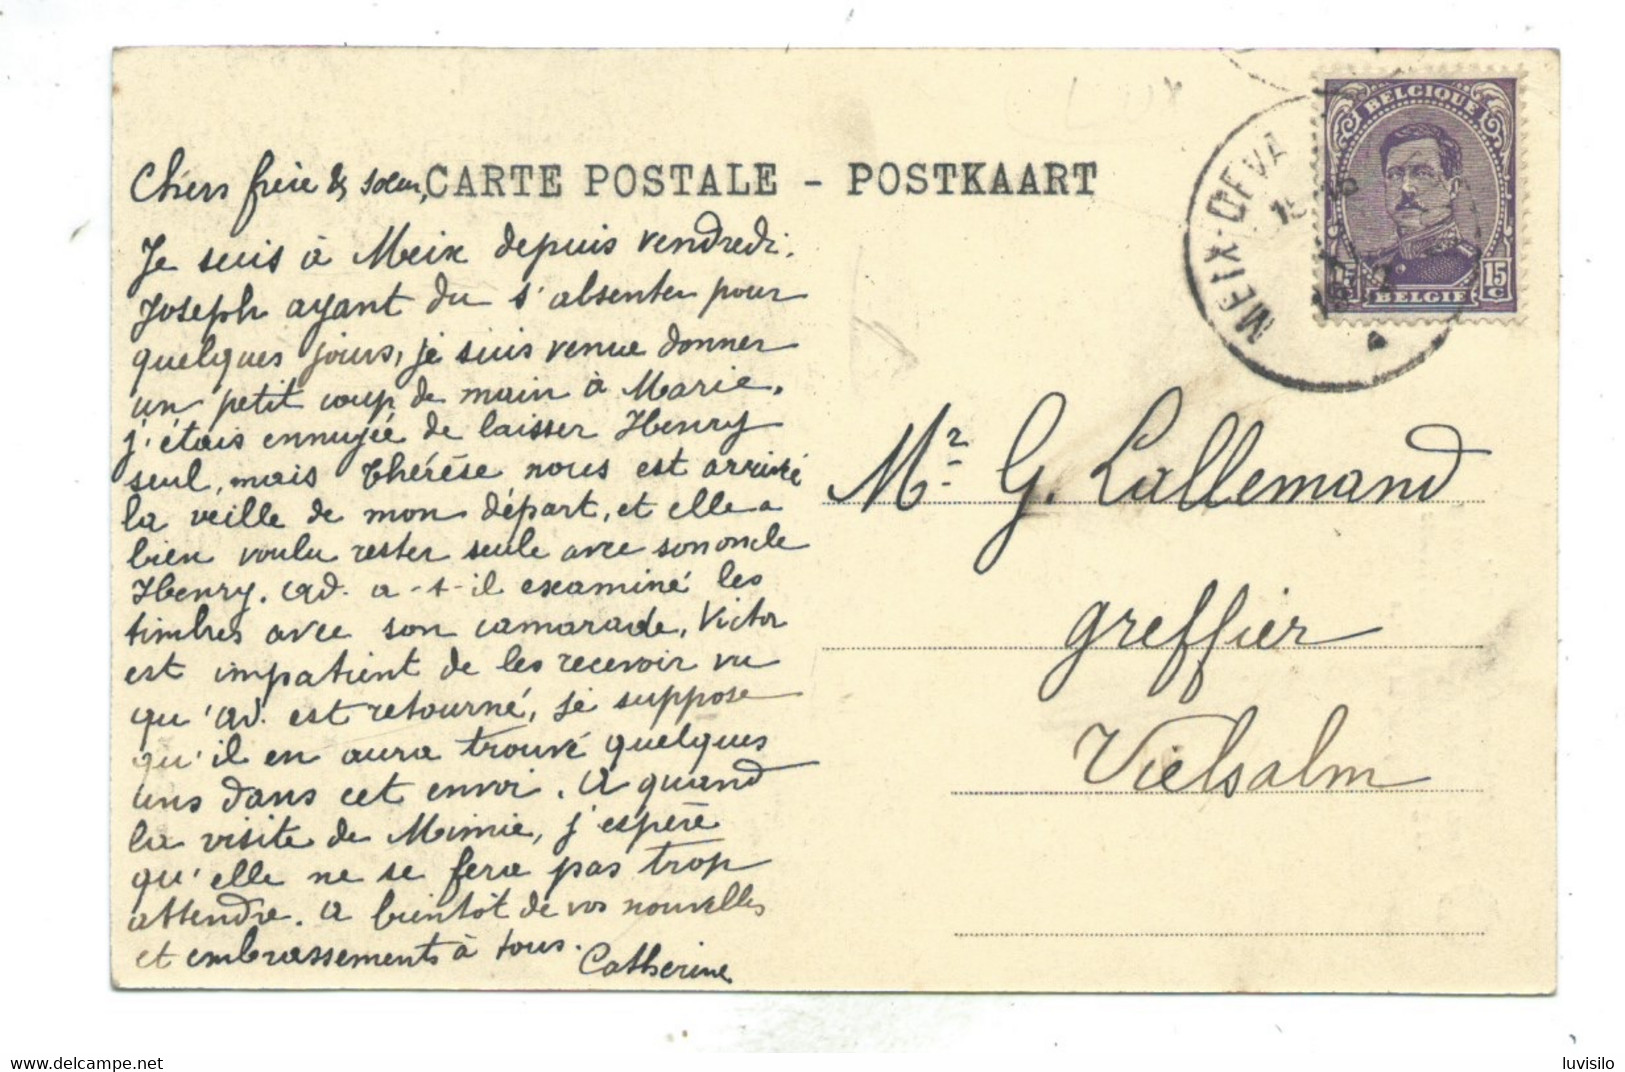 Chers frère & soeur,
CARTE POSTALE - POSTKAART
Je suis à Meix depuis vendredi.
Joseph ayant du s'absenter pour
quelques jours, je suis venue donner
un petit coup de main à Marie.
j'étais ennuyée de laisser Henry
seul, mais Thérèse nous est arrivé
la veille de mon départ, et elle a
bien voulu rester seule avec son oncle
Henry. Ad. a-t-il examiné les
timbres avec son camarade, Victor
est impatient de les recevoir vu
qu'Ad. est retourné, je suppose
qu'il en aura trouvé quelques
uns dans cet envoi. A quand
la visite de Mimie, j'espère
qu'elle ne se fera pas trop
attendre. A bientôt de vos nouvelles
et embrassements à tous.
Catherine
BELGIQUE
15 C
BELGIE
MEIX-DEVA
Mr. G. Lallemand
greffier
Vielsalm
delcampe.net
luvisilo